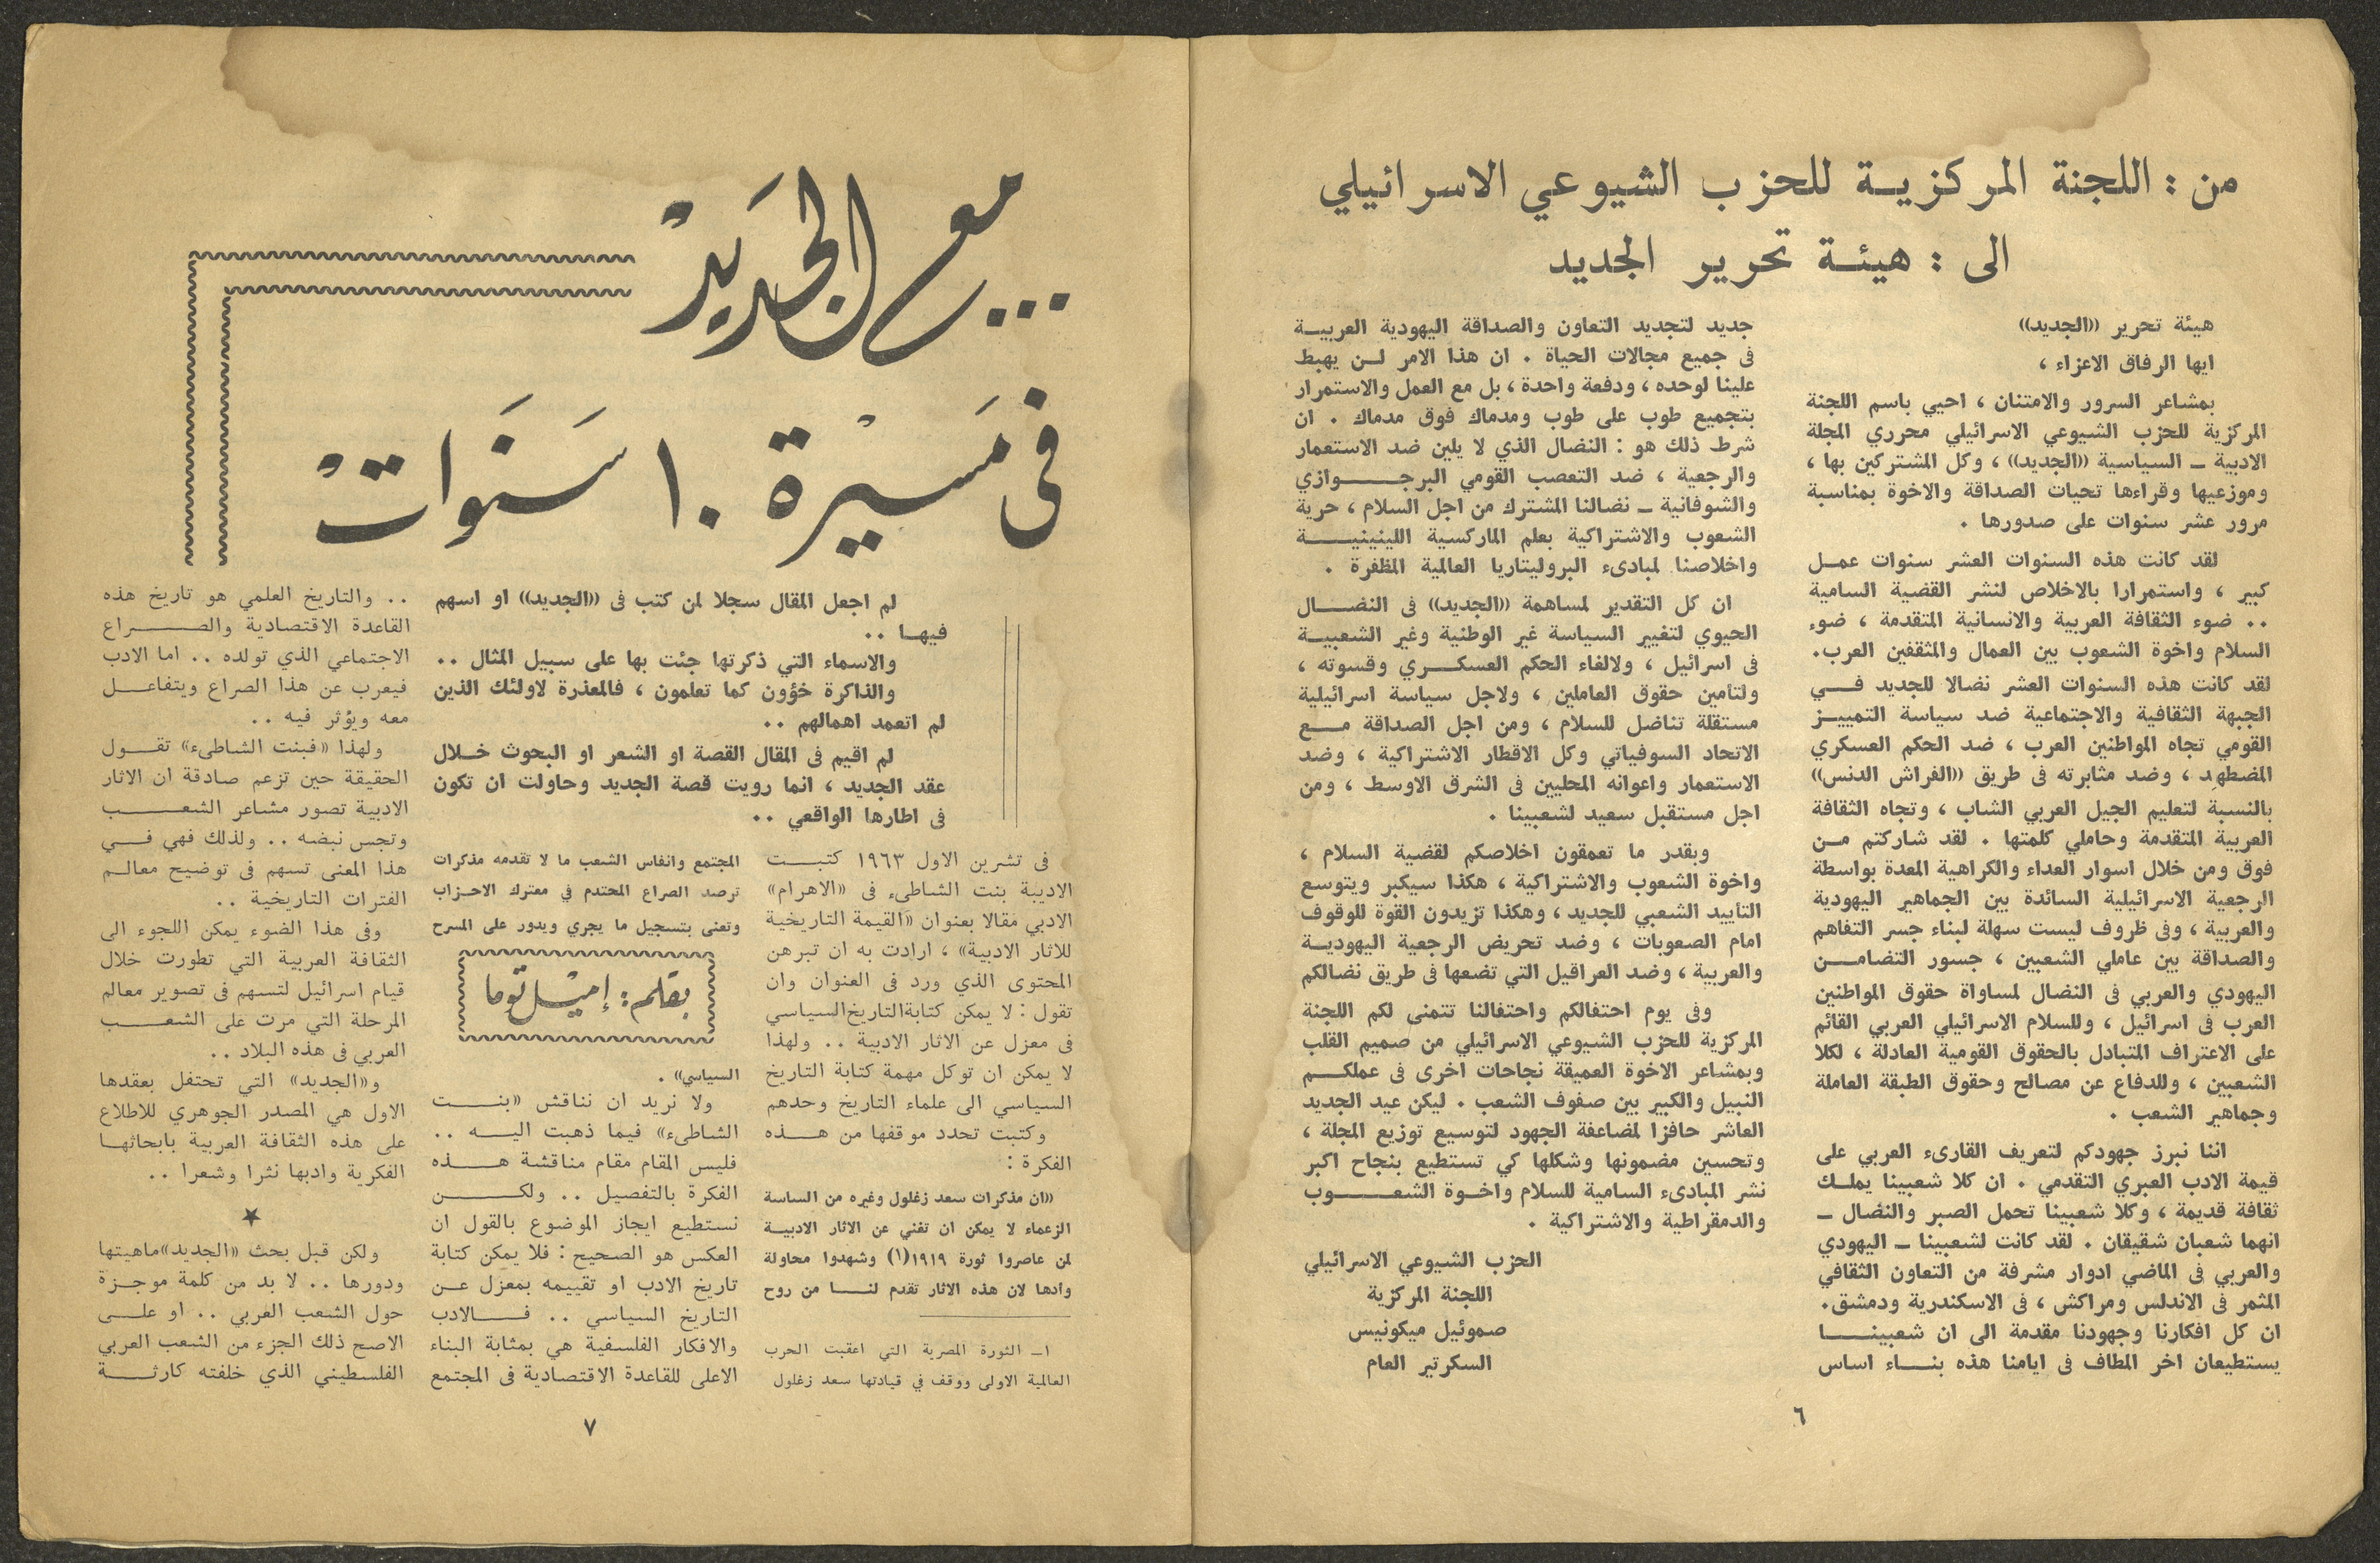 من : اللجنة المركزية للحزب الشيوعي الاسرائيلي
الى : هيئة تحرير الجديد
هيئة تحرير ((الجديد))
ايها الرفاق الاعزاء ،
بمشاعر السرور والامتنان ، احيي باسم اللجنة
المركزية للحزب الشيوعي الاسرائيلي محرري المجلة
الادبية ــ السياسية ((الجديد)) ، وكل المشتركين بها ،
وموزعيها وقراءها تحيات الصداقة والاخوة بمناسبة
مرور عشر سنوات على صدورها .
لقد كانت هذه السنوات العشر سنوات عمل
كبير ، واستمرارا بالاخلاص لنشر القضية السامية
.. ضوء الثقافة العربية والانسانية المتقدمة ، ضوء
السلام واخوة الشعوب بين العمال والمثقفين العرب.
لقد كانت هذه السنوات العشر نضالا للجديد في
الجبهة الثقافية والاجتماعية ضد سياسة التمييز
القومي تجاه المواطنين العرب ، ضد الحكم العسكري
المضطهد ، وضد مثابرته فى طريق ((الفراش الدنس))
بالنسبة لتعليم الجيل العربي الشاب ، وتجاه الثقافة
العربية المتقدمة وحاملي كلمتها . لقد شاركتم من
فوق ومن خلال اسوار العداء والكراهية المعدة بواسطة
الرجعية الاسرائيلية السائدة بين الجماهير اليهودية
والعربية ، وفى ظروف ليست سهلة لبناء جسر التفاهم
والصداقة بين عاملي الشعبين ، جسور التضامن
اليهودي والعربي فى النضال لمساواة حقوق المواطنين
العرب فى اسرائيل ، وللسلام الاسرائيلي العربي القائم
على الاعتراف المتبادل بالحقوق القومية العادلة ، لكلا
الشعبين ، وللدفاع عن مصالح وحقوق الطبقة العاملة
وجماهير الشعب .
اننا نبرز جهودكم لتعريف القارىء العربي على
قيمة الادب العبري التقدمي . ان كلا شعبينا يملك
ثقافة قديمة ، وكلا شعبينا تحمل الصبر والنضال ــ
انهما شعبان شقيقان . لقد كانت لشعبينا ــ اليهودي
والعربي فى الماضي ادوار مشرفة من التعاون الثقافي
المثمر فى الاندلس ومراكش ، فى الاسكندرية ودمشق.
ان كل افكارنا وجهودنا مقدمة الى ان شعبينا
يستطيعان اخر المطاف فى ايامنا هذه بناء اساس
جديد لتجديد التعاون والصداقة اليهودية العربية
فى جميع مجالات الحياة . ان هذا الامر لن يهبط
علينا لوحده ، ودفعة واحدة ، بل مع العمل والاستمرار
بتجميع طوب على طوب ومدماك فوق مدماك . ان
شرط ذلك هو : النضال الذي لا يلين ضد الاستعمار
والرجعية ، ضد التعصب القومي البرجوازي
والشوفانية ــ نضالنا المشترك من اجل السلام ، حرية
الشعوب والاشتراكية بعلم الماركسية اللينينية
واخلاصنا لمبادىء البروليتاريا العالمية المظفرة .
ان كل التقدير لمساهمة ((الجديد)) فى النضال
الحيوي لتغيير السياسة غير الوطنية وغير الشعبية
فى اسرائيل ، ولالغاء الحكم العسكري وقسوته ،
ولتامين حقوق العاملين ، ولاجل سياسة اسرائيلية
مستقلة تناضل للسلام ، ومن اجل الصداقة مع
الاتحاد السوفياتي وكل الاقطار الاشتراكية ، وضد
الاستعمار واعوانه المحليين فى الشرق الاوسط ، ومن
اجل مستقبل سعيد لشعبينا .
وبقدر ما تعمقون اخلاصكم لقضية السلام ،
واخوة الشعوب والاشتراكية ، هكذا سيكبر ويتوسع
التأييد الشعبي للجديد ، وهكذا تزيدون القوة للوقوف
امام الصعوبات ، وضد تحريض الرجعية اليهودية
والعربية ، وضد العراقيل التي تضعها فى طريق نضالكم
وفى يوم احتفالكم واحتفالنا تتمنى لكم اللجنة
المركزية للحزب الشيوعي الاسرائيلي من صميم القلب
وبمشاعر الاخوة العميقة نجاحات اخرى فى عملكم
النبيل والكبير بين صفوف الشعب . ليكن عيد الجديد
العاشر حافزا لمضاعفة الجهود لتوسيع توزيع المجلة ،
وتحسين مضمونها وشكلها كي تستطيع بنجاح اكبر
نشر المبادىء السامية للسلام واخوة الشعوب
والدمقراطية والاشتراكية .
الحزب الشيوعي الاسرائيلي
اللجنة المركزية
صموئيل ميكونيس
السكرتير العام
٦
... مع الجَديدْ
فى مَسيْرة ١٠ سَنَوَاتْ
لم اجعل المقال سجلا لمن كتب فى ((الجديد)) او اسهم
فيها ..
والاسماء التي ذكرتها جئت بها على سبيل المثال ..
والذاكرة خؤون كما تعلمون ، فالمعذرة لاولئك الذين
لم اتعمد اهمالهم ..
لم اقيم فى المقال القصة او الشعر او البحوث خلال
عقد الجديد ، انما رويت قصة الجديد وحاولت ان تكون
فى اطارها الواقعي ..
فى تشرين الاول ١٩٦٣ كتبت
الاديبة بنت الشاطىء فى ((الاهرام))
الادبي مقالا بعنوان ((القيمة التاريخية
للاثار الادبية)) ، ارادت به ان تبرهن
المحتوى الذي ورد فى العنوان وان
تقول : لا يمكن كتابة التاريخ السياسي
فى معزل عن الاثار الادبية .. ولهذا
لا يمكن ان توكل مهمة كتابة التاريخ
السياسي الى علماء التاريخ وحدهم
وكتبت تحدد موقفها من هذه
الفكرة :
((ان مذكرات سعد زغلول وغيره من الساسة
الزعماء لا يمكن ان تغني عن الاثار الادبية
لمن عاصروا ثورة ١٩١٩(١) وشهدوا محاولة
وادها لان هذه الاثار تقدم لنا من روح
١ــ الثورة المصرية التي اعقبت الحرب
العالمية الاولى ووقف في قيادتها سعد زغلول
المجتمع وانفاس الشعب ما لا تقدمه مذكرات
ترصد الصراع المحتدم في معترك الاحزاب
وتعنى بتسجيل ما يجري ويدور على المسرح
بقلم : إميْل توما
السياسي)) .
ولا نريد ان نناقش ((بنت
الشاطىء)) فيما ذهبت اليه ..
فليس المقام مقام مناقشة هذه
الفكرة بالتفصيل .. ولكن
نستطيع ايجاز الموضوع بالقول ان
العكس هو الصحيح : فلا يمكن كتابة
تاريخ الادب او تقييمه بمعزل عن
التاريخ السياسي .. فالادب
والافكار الفلسفية هي بمثابة البناء
الاعلى للقاعدة الاقتصادية فى المجتمع
.. والتاريخ العلمي هو تاريخ هذه
القاعدة الاقتصادية والصراع
الاجتماعي الذي تولده .. اما الادب
فيعرب عن هذا الصراع ويتفاعل
معه ويؤثر فيه ..
ولهذا ((فبنت الشاطىء)) تقول
الحقيقة حين تزعم صادقة ان الاثار
الادبية تصور مشاعر الشعب
وتجس نبضه .. ولذلك فهي في
هذا المعنى تسهم فى توضيح معالم
الفترات التاريخية ..
وفى هذا الضوء يمكن اللجوء الى
الثقافة العربية التي تطورت خلال
قيام اسرائيل لتسهم فى تصوير معالم
المرحلة التي مرت على الشعب
العربي فى هذه البلاد ..
و((الجديد)) التي تحتفل بعقدها
الاول هي المصدر الجوهري للاطلاع
على هذه الثقافة العربية بابحاثها
الفكرية وادبها نثرا وشعرا ..
★
ولكن قبل بحث ((الجديد)) ماهيتها
ودورها .. لا بد من كلمة موجزة
حول الشعب العربي .. او على
الاصح ذلك الجزء من الشعب العربي
الفلسطيني الذي خلفته كارثة
٧